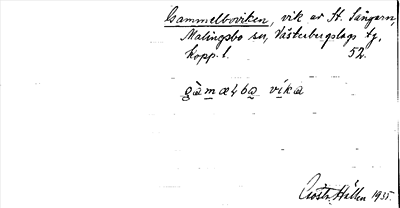 Gammelboviken, vik av St. Sången,
Malingsbo sn, Västerbergslags tg,
Kopp. l. 52.
gàmæɬbo̱ vi̱ka
Gösta Hallén 1935.